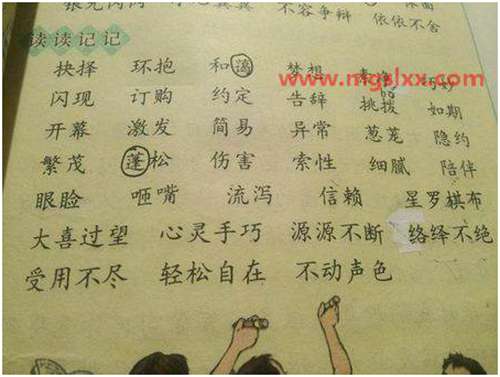 不容争辩 依依不舍
读读记记
抉择 环抱 和蔼 梦想
www.mgslxx.com
闪现 订购 约定 告辞 挑拨 如期
开幕 激发 简易 异常 葱茏 隐约
繁茂 蓬松 伤害 索性 细腻 陪伴
眼睑 咂嘴 流泻 信赖 星罗棋布
大喜过望 心灵手巧 源源不断 络绎不绝
受用不尽 轻松自在 不动声色